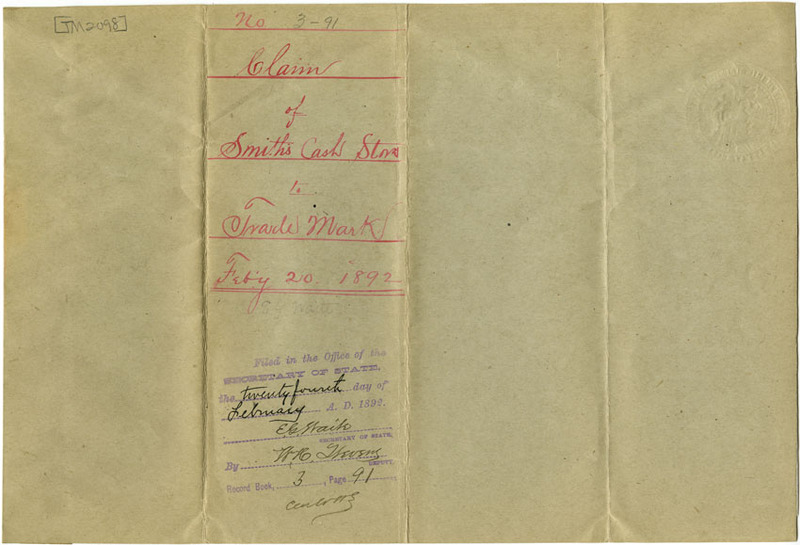 [TM2098]
No 3-91
Claim
of
Smith's Cash Store
to
Trade Mark
Feb'y 20. 1892
Filed in the Office of the
SECRETARY OF STATE,
the twenty fourth day of
February A. D. 1892.
E G Waite
SECRETARY OF STATE,
By W. H. Stevens
DEPUTY.
Record Book, 3, Page 91,